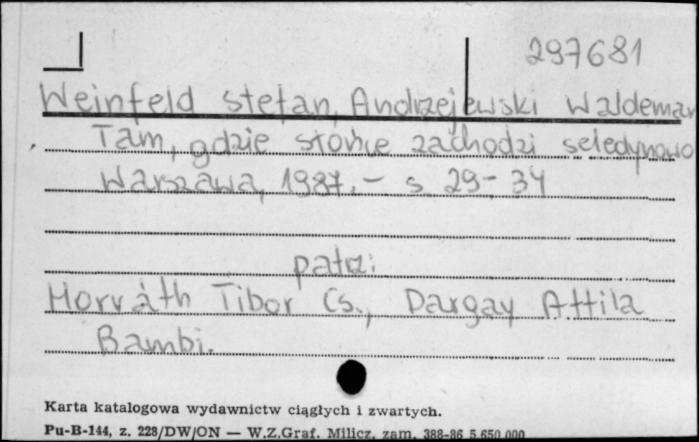 297681
Weinfeld Stefan, Andrzejewski Waldemar
Tam, gdzie słońce zachodzi seledynowo
Warszawa, 1987. – s. 29-34
patrz:
Horváth Tibor Cs., Dargay Attila
Bambi.
Karta katalogowa wydawnictw ciągłych i zwartych.
Pu-B-144, z. 228/DW/ON — W.Z.Graf. Milicz, zam. 388-86 5.650.000